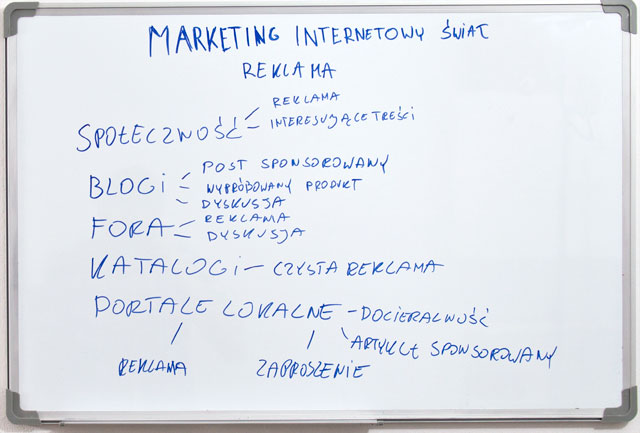 MARKETING INTERNETOWY ŚWIAT
REKLAMA
REKLAMA
SPOŁECZNOŚĆ INTERESUJĄCE TREŚCI
POST SPONSOROWANY
BLOGI WYPRÓBOWANY PRODUKT
DYSKUSJA
FORA REKLAMA
DYSKUSJA
KATALOGI - CZYSTA REKLAMA
PORTALE LOKALNE - DOCIERALWOŚĆ
ARTYKUŁ SPONSOROWANY
REKLAMA ZAPROSZENIE